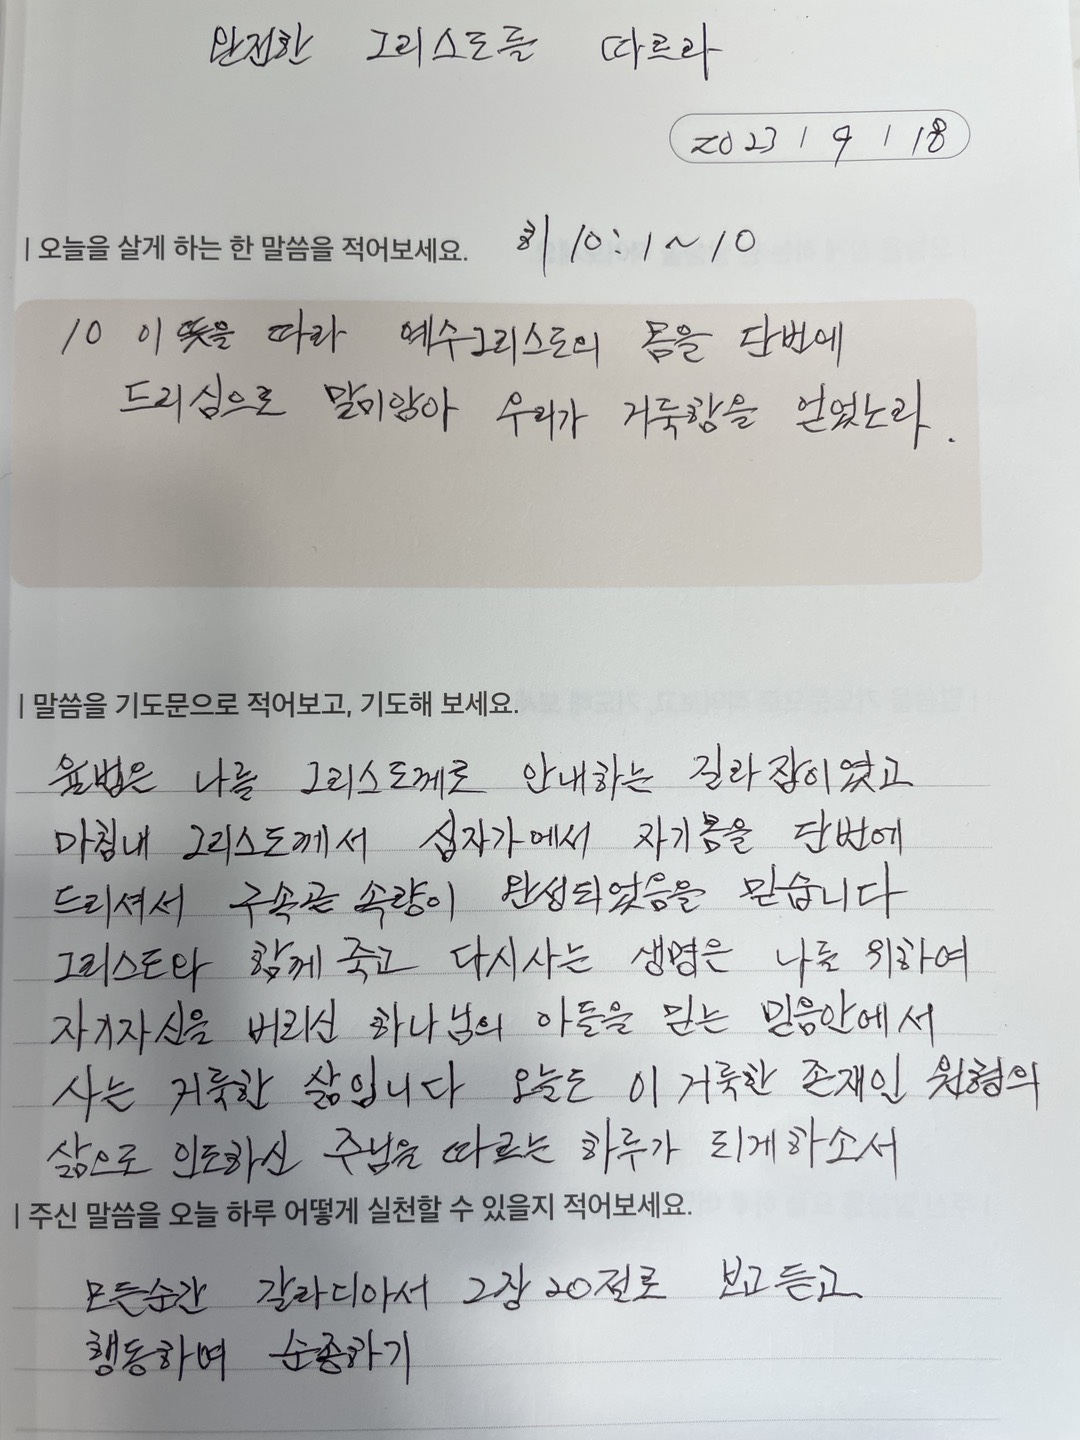 완전한 그리스도를 따르라
2023 / 9 / 18
| 오늘을 살게 하는 한 말씀을 적어보세요. 히 10:1~10
10 이 뜻을 따라 예수그리스도의 몸을 단번에
드리심으로 말미암아 우리가 거룩함을 얻었노라.
| 말씀을 기도문으로 적어보고, 기도해 보세요.
율법은 나를 그리스도께로 안내하는 길라잡이였고
마침내 그리스도께서 십자가에서 자기몸을 단번에
드리셔서 구속곧 속량이 완성되었음을 믿습니다
그리스도와 함께 죽고 다시사는 생명은 나를 위하여
자기자신을 버리신 하나님의 아들을 믿는 믿음안에서
사는 거룩한 삶입니다 오늘도 이 거룩한 존재인 원형의
삶으로 인도하신 주님을 따르는 하루가 되게하소서
| 주신 말씀을 오늘 하루 어떻게 실천할 수 있을지 적어보세요.
모든순간 갈라디아서 2장 20절로 보고 듣고
행동하며 순종하기